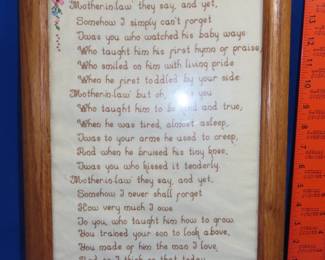 "Mother-in-law" they say, and yet,
Somehow I simply can't forget
'Twas you who watched his baby ways
Who taught him his first hymn of praise,
Who smiled on him with living pride
When he first toddled by your side
"Mother-in-law" but oh, you
Who taught him to be kind and true;
When he was tired, almost asleep,
'Twas to your arms he used to creep,
And when he bruised his tiny knee,
'Twas you who kissed it tenderly.
"Mother-in-law" they say, and yet,
Somehow I never shall forget
How very much I owe
To you, who taught him how to grow.
You trained your son to look above,
You made of him the man I love,
And so I think of that today